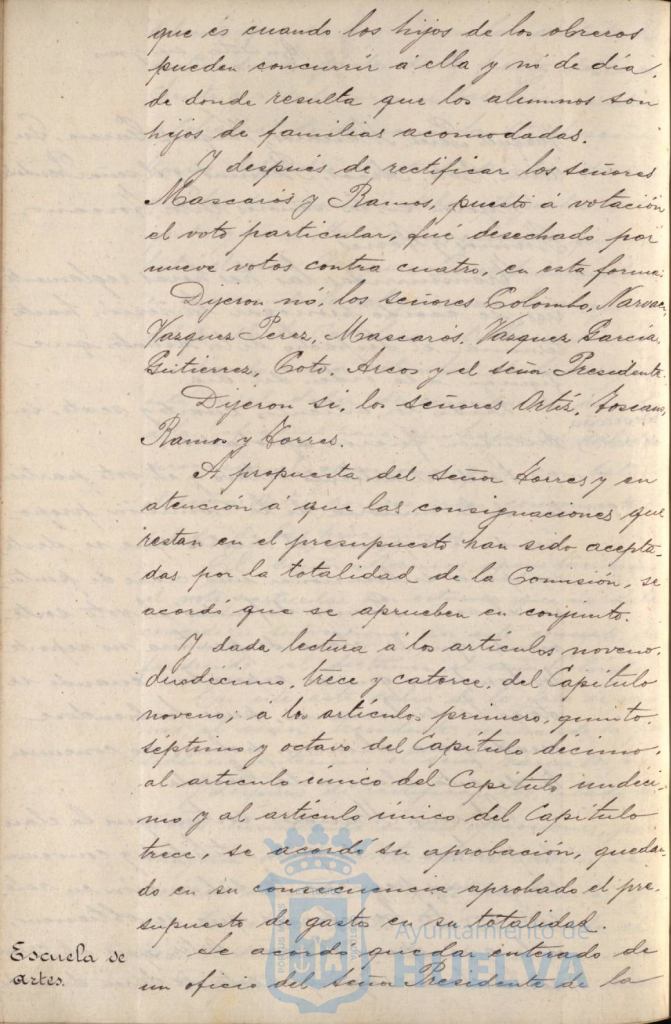 que és cuando los hijos de los obreros
pueden concurrir á ella y nó de día,
de donde resulta que los alumnos son
hijos de familias acomodadas.
Y después de rectificar los señores
Mascarós y Ramos, puesto á votación
el voto particular, fué desechado por
nueve votos contra cuatro, en esta forma:
Dijeron nó, los señores Colombo, Narvaez,
Vazquez Perez, Mascarós, Vazquez García,
Gutierrez, Coto, Arcos y el señor Presidente.
Dijeron si, los señores Ortiz, Toscano,
Ramos y Torres.
A propuesta del señor Torres y en
atención á que las consignaciones que
restan en el presupuesto han sido acepta-
das por la totalidad de la Comisión, se
acordó que se aprueben en conjunto.
Y dada lectura á los artículos noveno,
duodécimo, trece y catorce, del Capítulo
noveno; á los artículos primero, quinto,
séptimo y octavo del Capítulo décimo,
al artículo único del Capítulo undéci-
mo y al artículo único del Capítulo
trece, se acordó su aprobación, quedan-
do en su consecuencia aprobado el pre-
supuesto de gasto en su totalidad.
Escuela de
artes.
Se acordó quedar enterado de
un oficio del señor Presidente de la
Ayuntamiento de
HUELVA